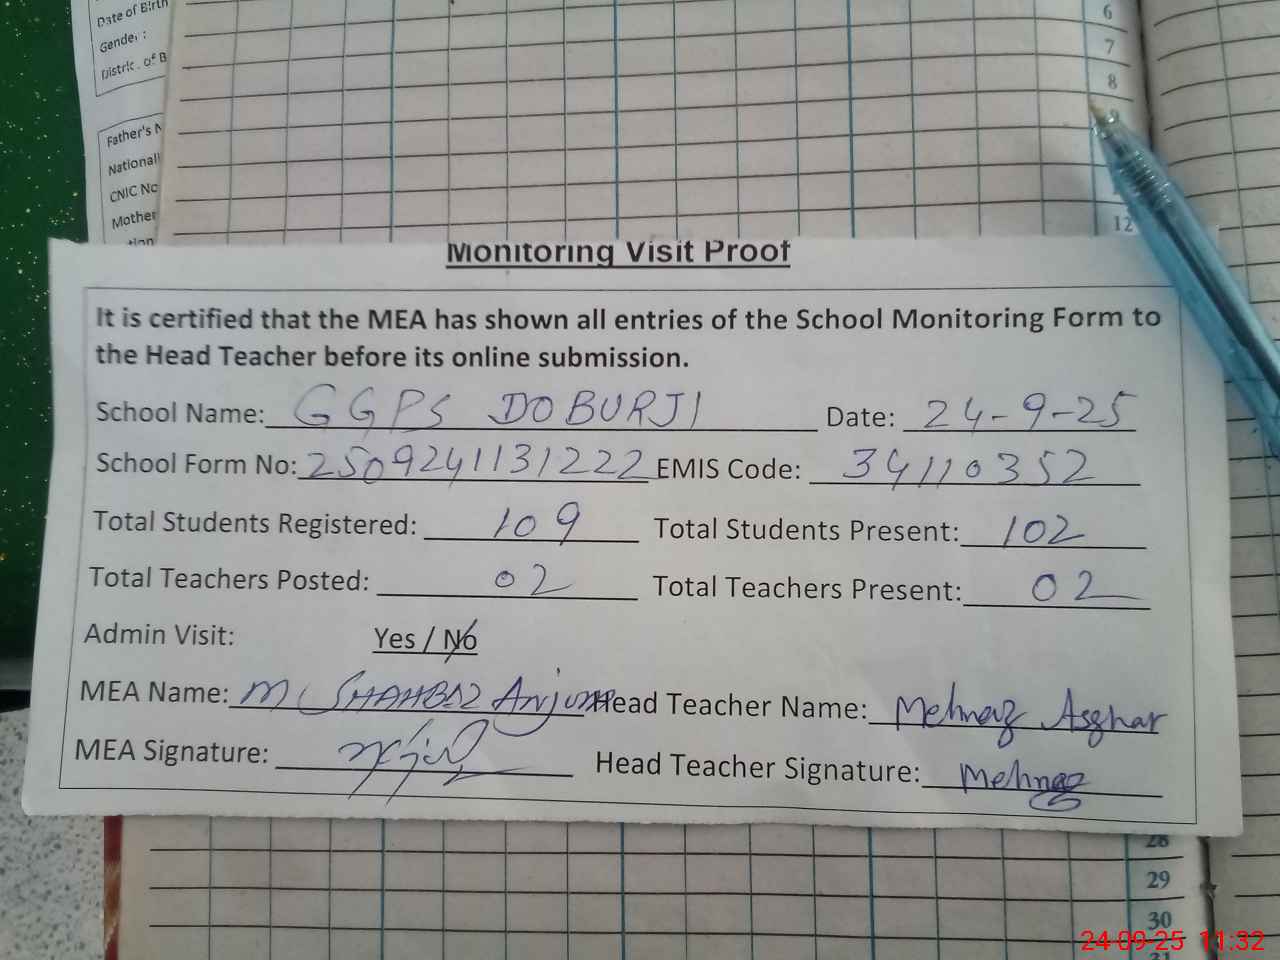 Date of Birth
Gender :
District of B
Father's N
National
CNIC No
Mother
6
7
8
9
12
Monitoring Visit Proof
It is certified that the MEA has shown all entries of the School Monitoring Form to
the Head Teacher before its online submission.
School Name: GGPS DOBURJI Date: 24-9-25
School Form No: 2509241131222 EMIS Code: 34110352
Total Students Registered: 109 Total Students Present: 102
Total Teachers Posted: 02 Total Teachers Present: 02
Admin Visit: Yes / No
MEA Name: M SHAHBAZ Anjum Head Teacher Name: Mehnaz Asghar
MEA Signature: Head Teacher Signature: Mehnaz
28
29
30
31
24-09-25 11:32